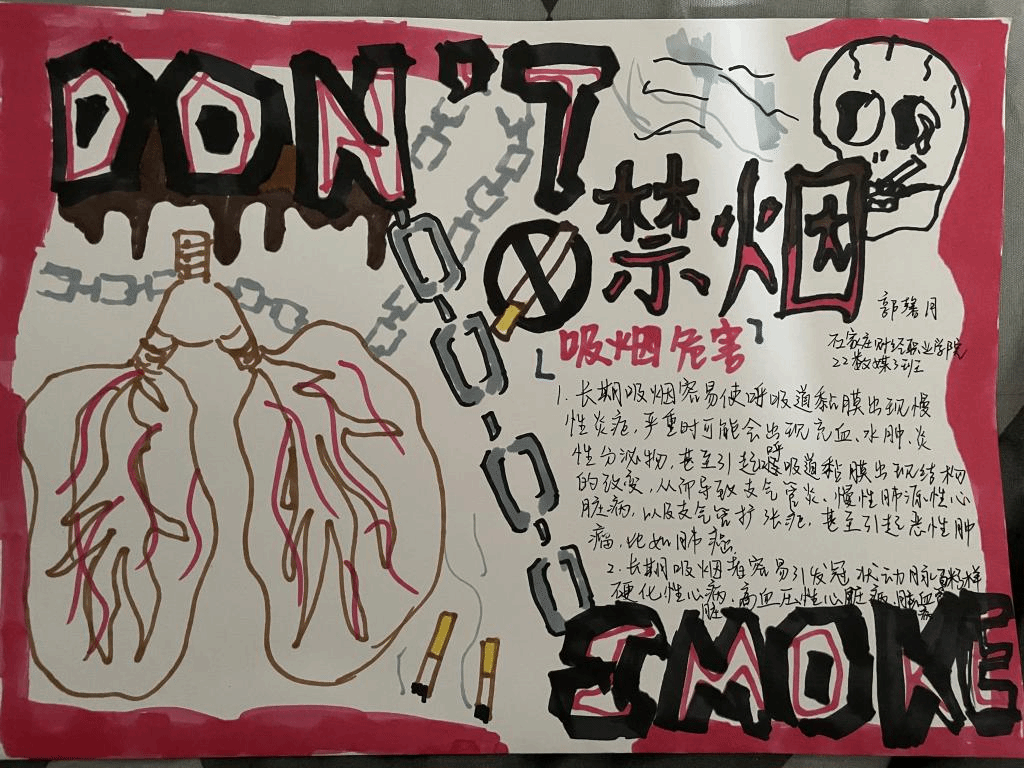 DON'T
禁烟
郭馨月
石家庄财经职业学院
22数媒3班
「吸烟危害」
1. 长期吸烟容易使呼吸道黏膜出现慢
性炎症,严重时可能会出现充血、水肿、炎
性分泌物,甚至引起呼吸道黏膜出现结构
的改变,从而导致支气管炎、慢性肺源性心
脏病,以及支气管扩张症,甚至引起恶性肿
瘤,比如肺癌。
2. 长期吸烟者容易引发冠状动脉粥样
硬化性心病,高血压性心脏病,脑血
SMOKE